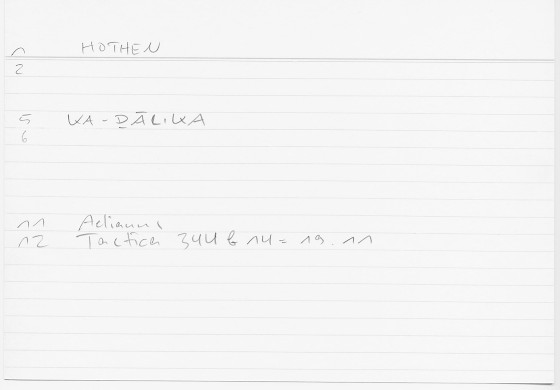 1 HOTHEN
2
5 WA-ḎĀLIKA
6
11 Aelianus
12 Tactica 344 b 14 = 19.11